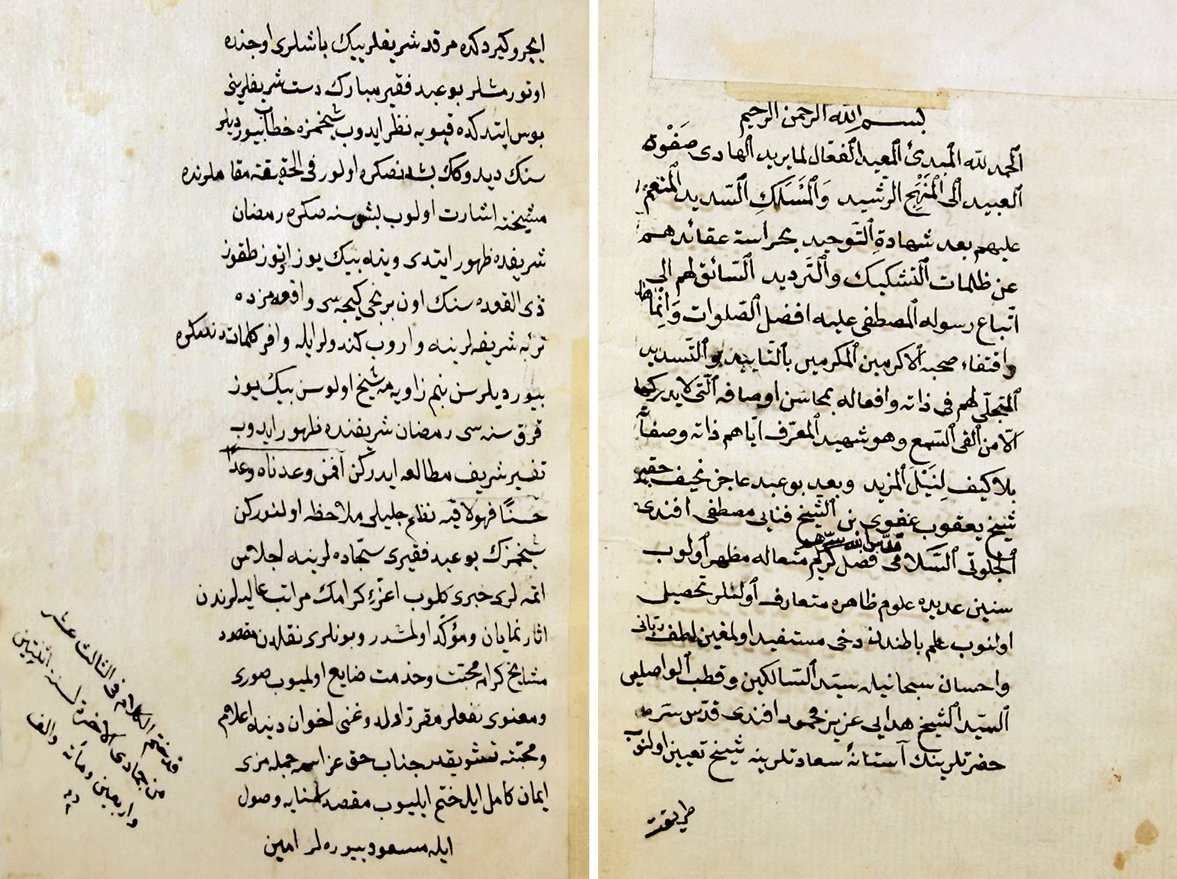 بسم الله الرحمن الرحيم
الحمد لله المبدئ المعيد الفعال لما يريد الهادى صفوة
العبيد الى المنهج الرشيد والمسلك السديد المنعم
عليهم بعد شهادة التوحيد بحراسة عقائدهم
عن ظلمات التشكيك والترديد السائق لهم الى
اتباع رسوله المصطفى عليه افضل الصلوات وانماها
واقتفاء صحبه الاكرمين المكرمين بالتاييد والتسديد
المتجلى لهم فى ذاته وافعاله بمحاسن اوصافه التى لا يدركها
الا من القى السمع وهو شهيد المعرف اياهم ذاته وصفاته
بلا كيف لنيل المزيد وبعد بو عبد عاجز نحيف حقير
شيخ يعقوب عفوى بن الشيخ فنايى مصطفى افندى
الجلوتى السلامى قدس الله سرهم فضل كريم متعاله مظهر اولوب
سنين عديده علوم ظاهره متعارف اولنلر تحصيل
اولنوب علم باطندن دخى مستفيد اولمغين لطف ربانى
واحسان سبحانيله سيد السالكين وقطب الواصلين
السيد الشيخ هدايى عزيز محمود افندى قدس سره
حضرتلرينك آستانۀ سعادتلرينه شيخ تعيين اولنوب
طريقت
ايچرو كيردكده مرقد شريفلرينك باشلرى اوجنده
اوتورمشلر بو عبد فقير مبارك دست شريفلرينى
بوس ايتدكده قپويه نظر ايدوب شيخمزه خطاب بيورديلر
سنك ديدوكك بشدنصكره اولور فى الحقيقه مقاملرنده
مشيخته اشارت اولوب بش سنه صكره رمضان
شريفده ظهور ايتدى وينه بيك يوز اوتوز طقوز
ذى القعده سنك اون برنجى كيجه سى واقعه مزده
تربه شريفه لرينه واروب كندولر ايله وافر كلمات دنصكره
بيورديلر سن بنم زاويه مه شيخ اولورسن بيك يوز
قرق سنه سى رمضان شريفنده ظهور ايدوب
تفسير شريف مطالعه ايدركن أفمن وعدناه وعدًا
حسنًا فهو لاقيه نظم جليلى ملاحظه اولنوركن
شيخمزك بو عبد فقيرى سجاده لرينه اجلاس
اتمه لرى خبرى كلوب اعزۀ كرامك مراتب عاليه لرندن
اثار نمايان ومؤكد اولمشدر وبونلرى نقلدن مقصد
مشايخ كرامه محبت وخدمت ضايع اولميوب صورى
ومعنوى نفعلر مقرر ايدوكنى اخوان دينه اعلام
ومحبته تشويقدر جناب حق عز اسمه جمله مزى
ايمان كامل ايله ختم ايليوب مقصد اقصايه وصول
ايله مسعود بيوره لر امين
قد ختم الكلام فى الثالث عشر
من جمادى الاخرة لسنة اثنتين
واربعين ومائة والف